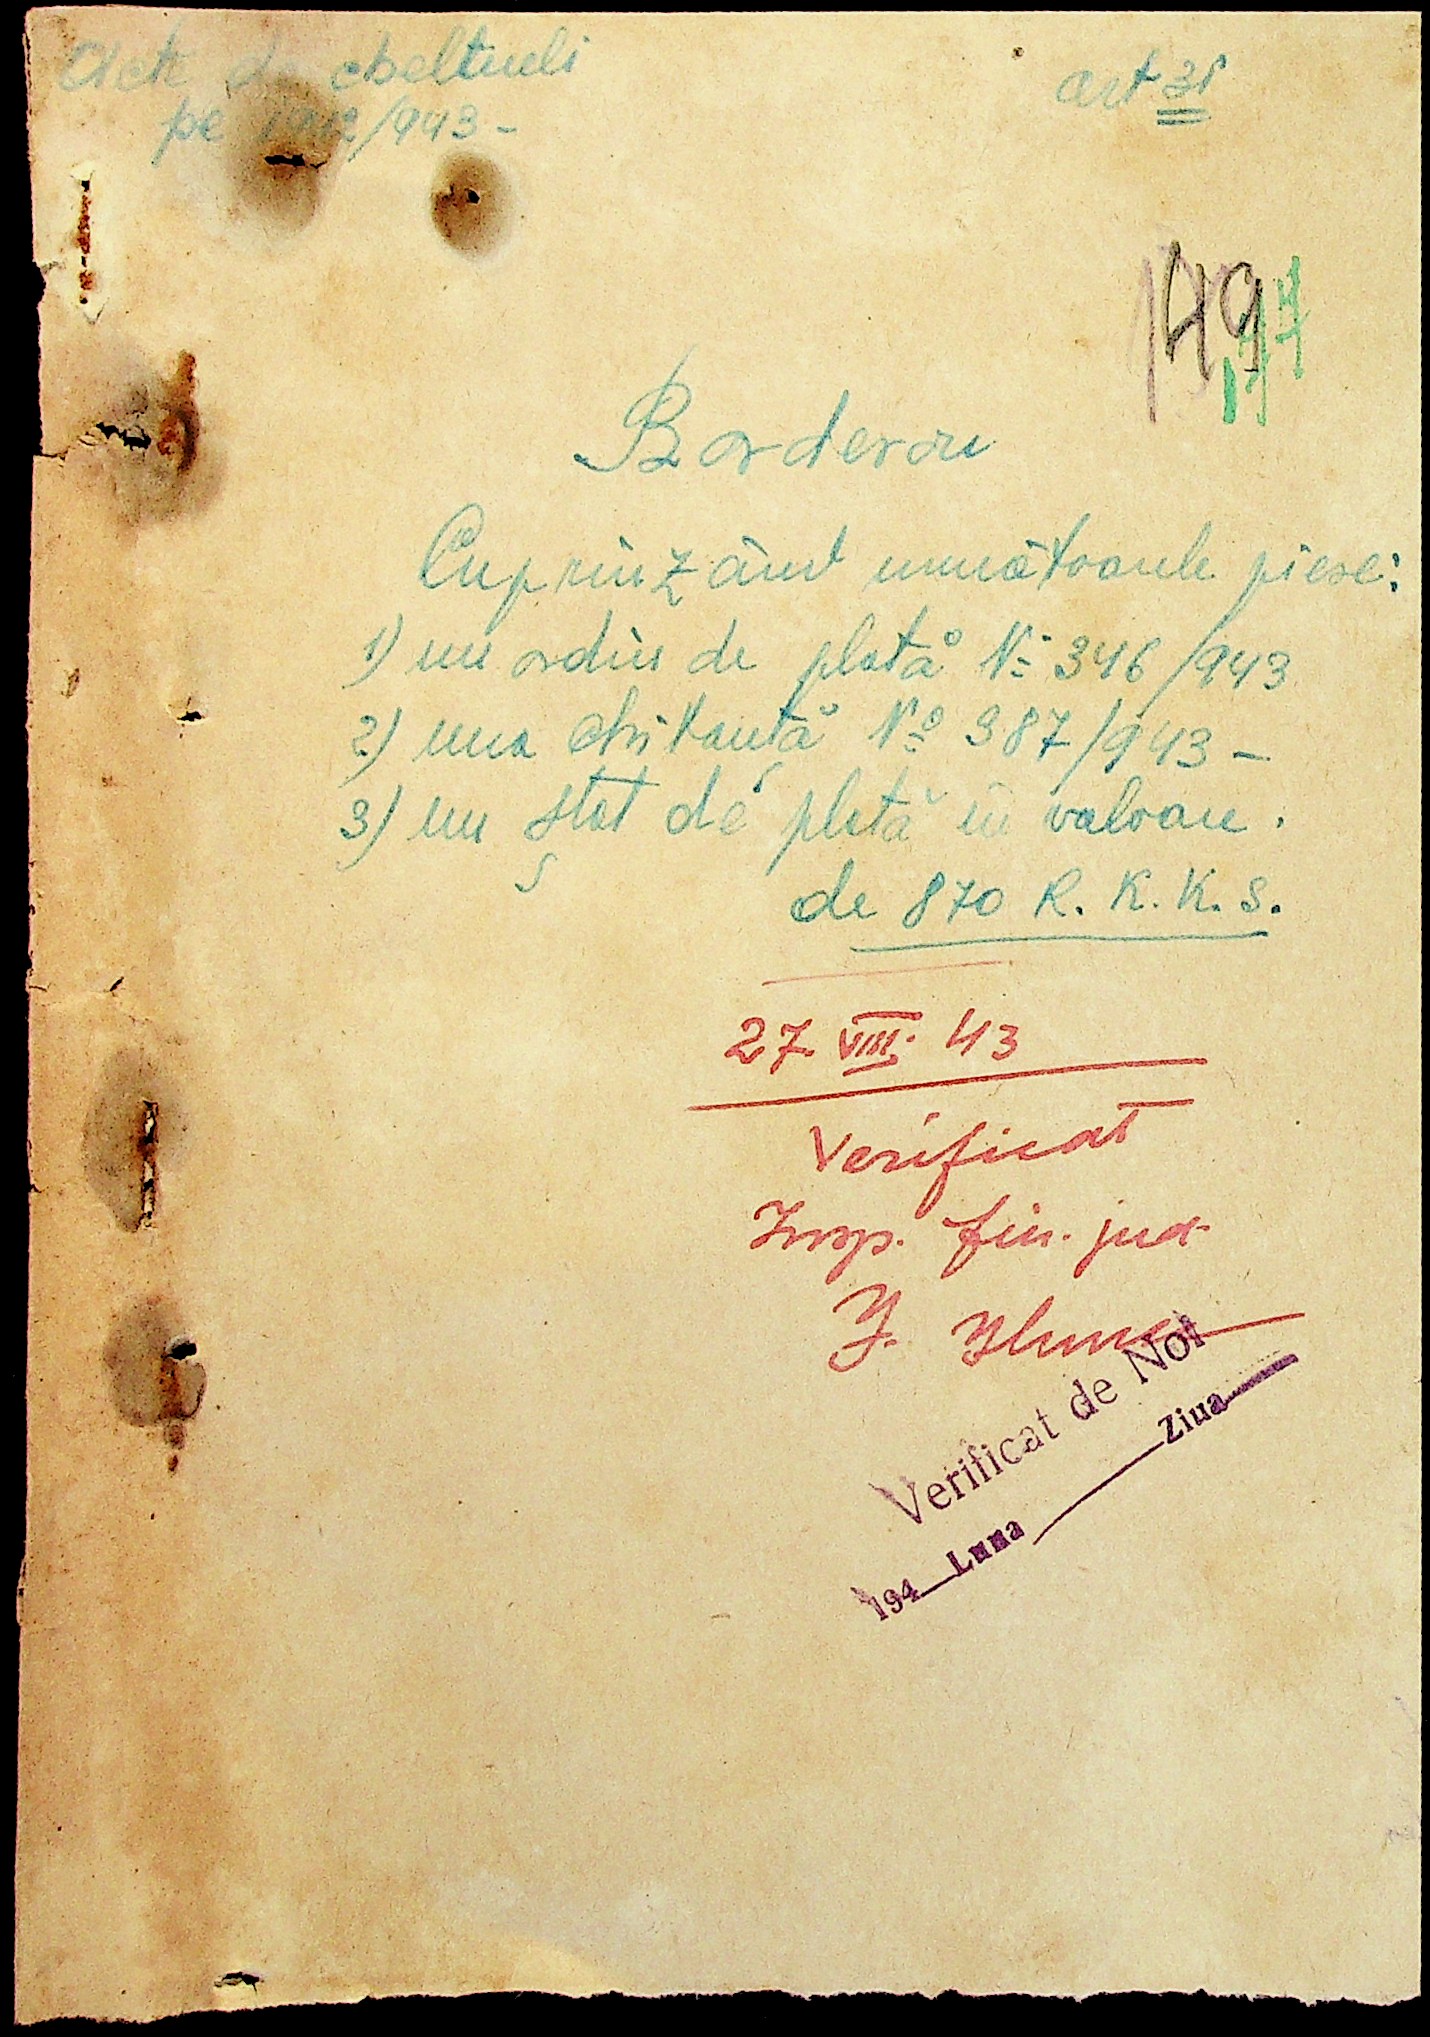 Acte de cheltueli
pe 1942/943 -
art 31
149
177
Borderou
Cuprinzând următoarele piese:
1) un ordin de plată No 346/943
2) una chitanță No 387/943 -
3) un ștat de plată în valoare
de 870 R. K. K. S.
27 VIII. 43
Verificat
Insp. fin. jud.
Verificat de Noi
194 Luna Ziua